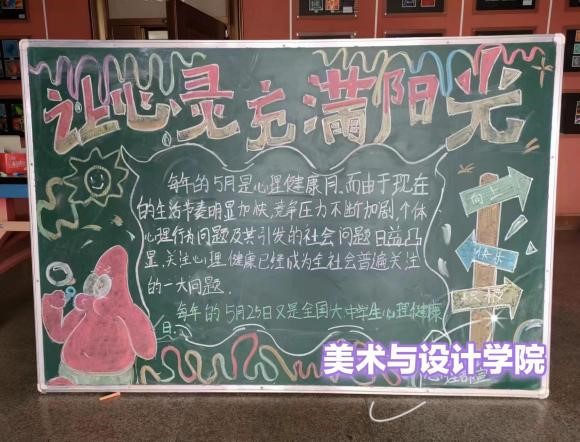 让心灵充满阳光
每年的5月是心理健康月,而由于现在
的生活节奏明显加快,竞争压力不断加剧,个体
心理行为问题及其引发的社会问题日益凸
显,关注心理健康已经成为全社会普遍关注
的一大问题.
每年的5月25日又是全国大中学生心理健康
日.
向上
快乐
积极
美术与设计学院